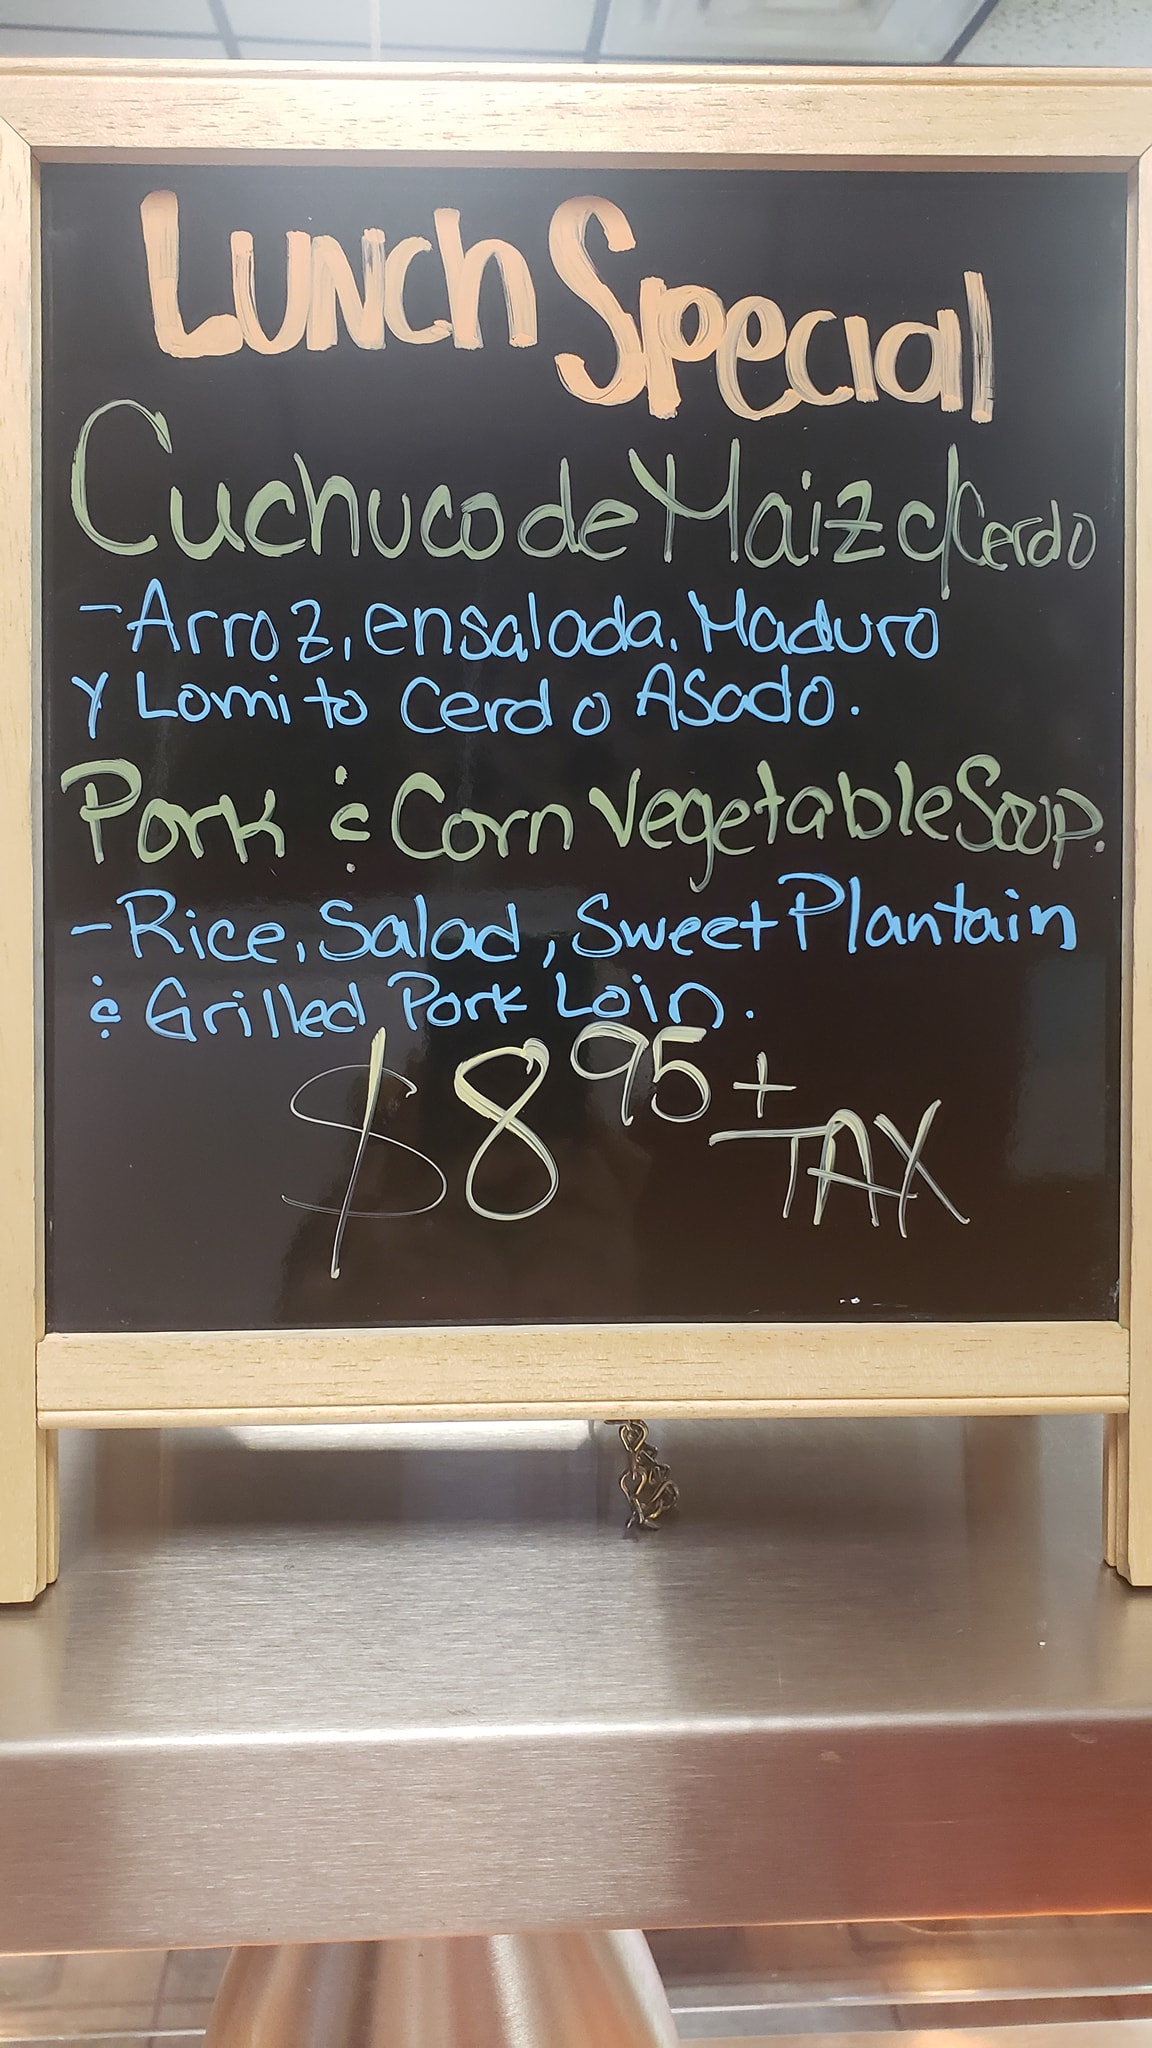 Lunch Special
Cuchuco de Maiz c/Cerdo
- Arroz, ensalada, Maduro
y Lomito Cerdo Asado.
Pork & Corn Vegetable Soup.
- Rice, Salad, Sweet Plantain
& Grilled Pork Loin.
$8.95 +
TAX